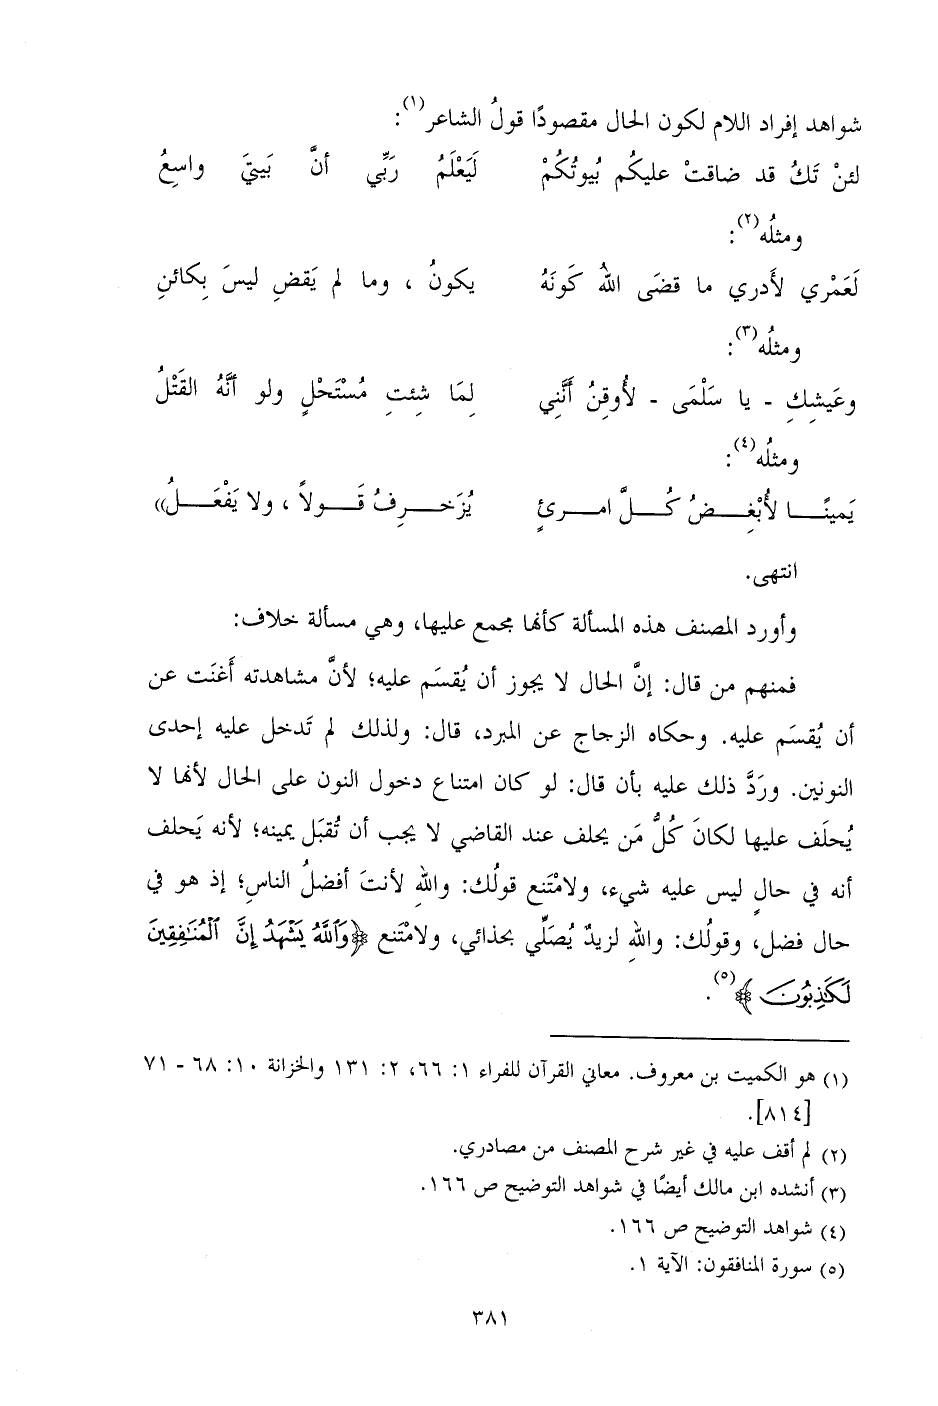 شواهد إفراد اللام لكون الحال مقصودًا قولُ الشاعر(١):
لئنْ تَكُ قد ضاقتْ عليكُم بُيوتُكُمْ لَيَعْلَمُ رَبِّي أنَّ بَيتيَ واسِعُ
ومثلُه(٢):
لَعَمْري لأَدري ما قضَى اللهُ كَونَهُ يكونُ ، وما لم يَقضِ ليسَ بِكائنِ
ومثلُه(٣):
وعَيشِكِ - يا سَلْمَى - لأُوقِنُ أَنَّني لِمَا شِئتِ مُسْتَحْلٍ ولو أنَّهُ القَتْلُ
ومثلُه(٤):
يَمينًا لأُبْغِضُ كُلَّ امرئٍ يُزَخرِفُ قَولاً ، ولا يَفْعَلُ))
انتهى.
وأورد المصنف هذه المسألة كأنها مجمع عليها، وهي مسألة خلاف:
فمنهم من قال: إنَّ الحال لا يجوز أن يُقسَم عليه؛ لأنَّ مشاهدته أَغنَت عن
أن يُقسَم عليه. وحكاه الزجاج عن المبرد، قال: ولذلك لم تَدخل عليه إحدى
النونين. ورَدَّ ذلك عليه بأن قال: لو كان امتناع دخول النون على الحال لأنها لا
يُحلَف عليها لكانَ كُلُّ مَن يحلف عند القاضي لا يجب أن تُقبَل يمينه؛ لأنه يَحلف
أنه في حالٍ ليس عليه شيء، ولامْتَنع قولُك: واللهِ لأنتَ أفضلُ الناسِ؛ إذ هو في
حال فضل، وقولُك: واللهِ لزيدٌ يُصَلِّي بحذائي، ولامْتَنع ﴿وَٱللَّهُ يَشْهَدُ إِنَّ ٱلْمُنَٰفِقِينَ
لَكَٰذِبُونَ﴾(٥).
(١) هو الكميت بن معروف. معاني القرآن للفراء ١: ٦٦، ٢: ١٣١ والخزانة ١٠: ٦٨ - ٧١
[٨١٤].
(٢) لم أقف عليه في غير شرح المصنف من مصادري.
(٣) أنشده ابن مالك أيضًا في شواهد التوضيح ص ١٦٦.
(٤) شواهد التوضيح ص ١٦٦.
(٥) سورة المنافقون: الآية ١.
٣٨١